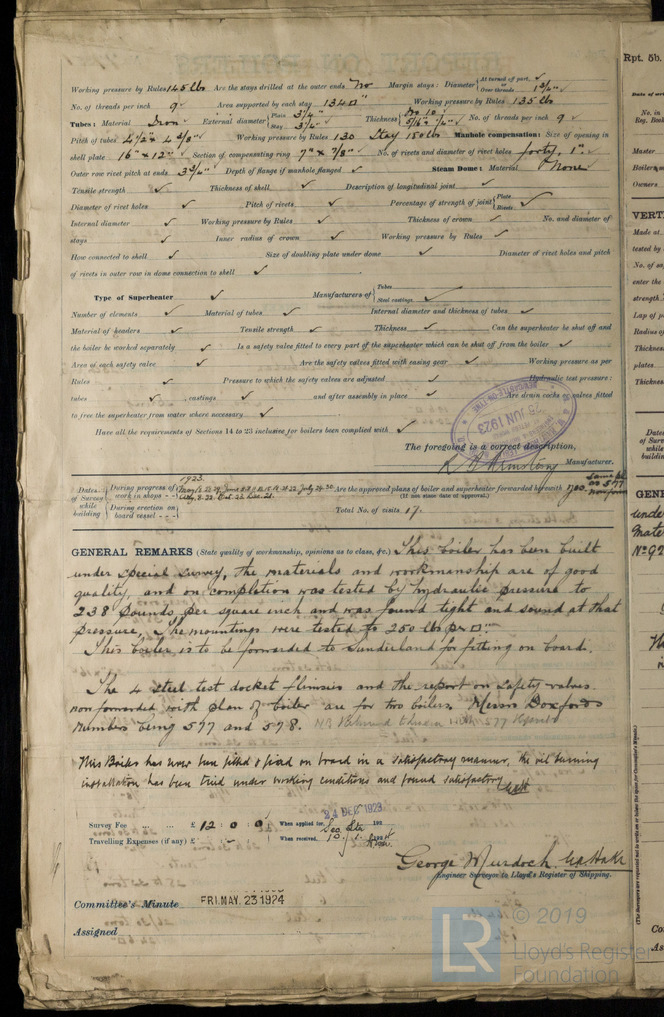 Working pressure by Rules 145 lbs Are the stays drilled at the outer ends No Margin stays: Diameter { At turned off part, ✓ or Over threads 1 3/4" ✓
No. of threads per inch 9 Area supported by each stay 134 □" Working pressure by Rules 135 lbs
Tubes: Material Iron External diameter { Plain 3 1/4" Stay 3 1/4" Thickness { No 10 5/16" 1/4" No. of threads per inch 9
Pitch of tubes 4 1/2" x 4 3/8" Working pressure by Rules 130 Stay 150 lbs Manhole compensation: Size of opening in
shell plate 16" x 12" Section of compensating ring 7" x 7/8" No. of rivets and diameter of rivet holes forty, 1"
Outer row rivet pitch at ends 3 3/4" Depth of flange if manhole flanged ✓ Steam Dome: Material None
Tensile strength ✓ Thickness of shell ✓ Description of longitudinal joint ✓
Diameter of rivet holes ✓ Pitch of rivets ✓ Percentage of strength of joint { Plate Rivets ✓
Internal diameter ✓ Working pressure by Rules ✓ Thickness of crown ✓ No. and diameter of
stays ✓ Inner radius of crown ✓ Working pressure by Rules ✓
How connected to shell ✓ Size of doubling plate under dome ✓ Diameter of rivet holes and pitch
of rivets in outer row in dome connection to shell ✓
Type of Superheater ✓ Manufacturers of { Tubes Steel castings ✓
Number of elements ✓ Material of tubes ✓ Internal diameter and thickness of tubes ✓
Material of headers ✓ Tensile strength ✓ Thickness ✓ Can the superheater be shut off and
the boiler be worked separately ✓ Is a safety valve fitted to every part of the superheater which can be shut off from the boiler ✓
Area of each safety valve ✓ Are the safety valves fitted with easing gear ✓ Working pressure as per
Rules ✓ Pressure to which the safety valves are adjusted ✓ Hydraulic test pressure:
tubes ✓, castings ✓ and after assembly in place ✓ Are drain cocks or valves fitted
to free the superheater from water where necessary ✓
Have all the requirements of Sections 14 to 23 inclusive for boilers been complied with ✓
JUN 1923
The foregoing is a correct description,
Manufacturer.
1923
Dates of Survey while building { During progress of work in shops - - Are the approved plans of boiler and superheater forwarded herewith yes
(If not state date of approval.)
During erection on board vessel - - - Total No. of visits 17.
GENERAL REMARKS (State quality of workmanship, opinions as to class, &c.) This boiler has been built
under special survey, the materials and workmanship are of good
quality, and on completion was tested by hydraulic pressure to
238 pounds per square inch and was found tight and sound at that
pressure. The mountings were tested to 250 lbs per □"
This boiler is to be forwarded to Sunderland for fitting on board.
The 4 steel test docket flimsies and the report on safety valves
now forwarded with plan of boiler are for two boilers. Messrs Doxfords
numbers being 577 and 578.
This Boiler has now been fitted & fixed on board in a satisfactory manner, the oil burning
installation has been tried under working conditions and found satisfactory
24 DEC 1923
Survey Fee ... ... £ 12 : 0 : 0 When applied for, 192
Travelling Expenses (if any) £ : - : When received,
George Murdoch
Engineer Surveyor to Lloyd's Register of Shipping.
Committee's Minute FRI. MAY. 23 1924
Assigned
Rpt. 5b.
No. in
Reg. Book
Master
Boilers
Owners
VERTI
Made at
tested by
No. of
enter the
strength
Lap of p
Radius o
Thickness
plates
Thickness
Dates
of Surve
while
buildin
GENE
under
Mate
LR
© 2019
Lloyd's Register
Foundation